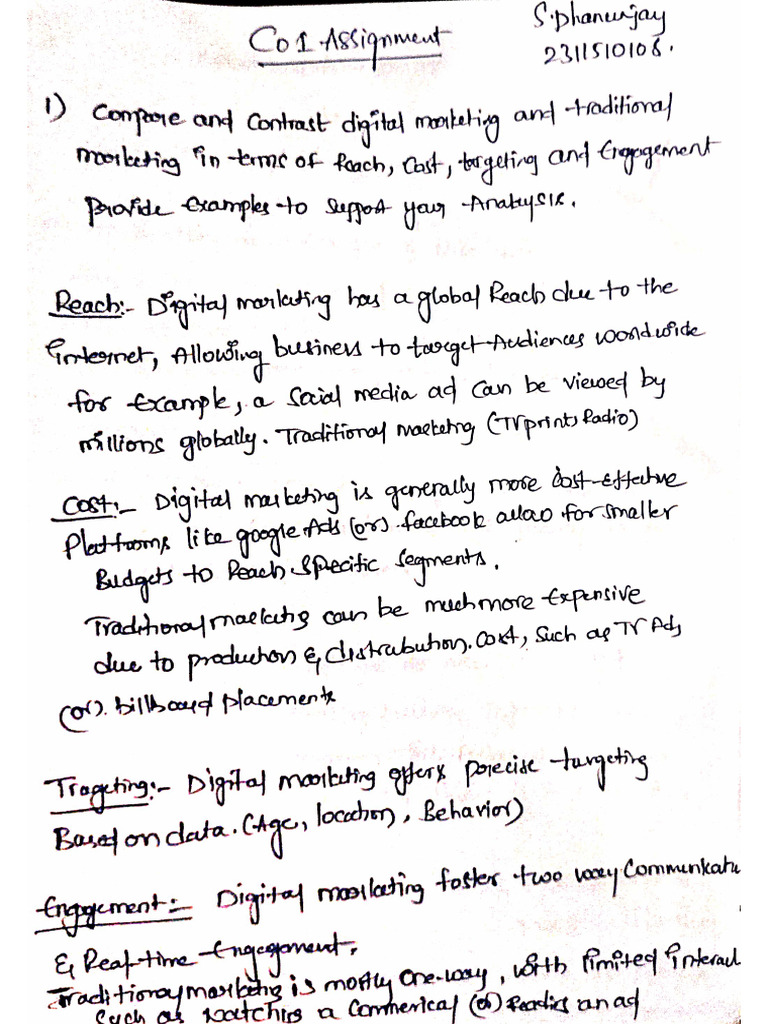 S. Dhanunjay
Co1 Assignment
2311510106.
1) Compare and Contrast digital marketing and traditional
marketing in terms of Reach, Cost, targeting and Engagement
Provide Examples to support your Analysis.
Reach:- Digital marketing has a global Reach due to the
internet, Allowing business to target Audiences worldwide
for Example, a social media ad can be viewed by
millions globally. Traditional marketing (TV prints Radio)
Cost:- Digital marketing is generally more Cost-effective
Platforms like google Ads (or). facebook allao for smaller
Budgets to Reach specific segments.
Traditional marketing can be much more Expensive
due to production & distrubution. Cost, such as TV Ads
(or). billboard placements
Trageting:- Digital marketing offers precise targeting
Based on data. (Age, location, Behavior)
Engagement:- Digital marketing foster two way Communicatu
& Real-time Engagement.
Traditional marketing is mostly one-way, with limited interac
such as watching a Commerical (or) Reading an ad